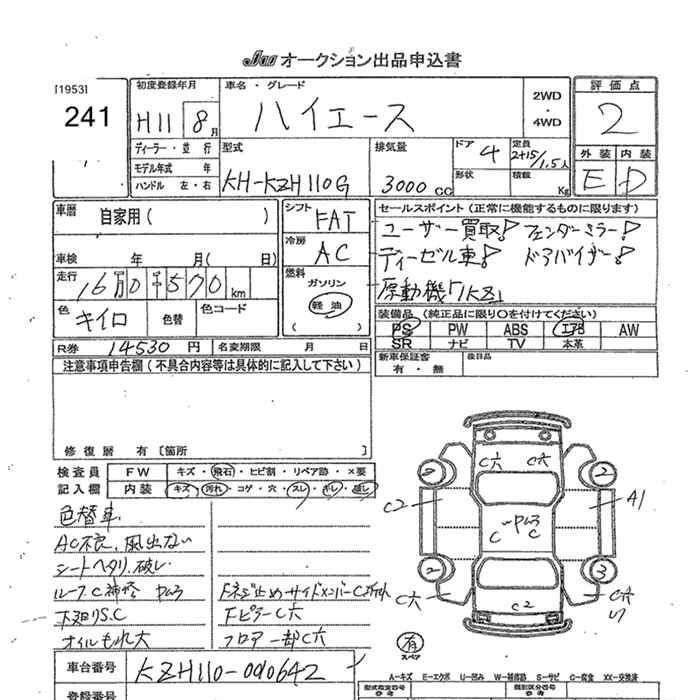 JU オークション出品申込書
[1953]
241
初度登録年月
H11 8月
車名・グレード
ハイエース
2WD
・
4WD
評価点
2
ディーラー・並行
モデル年式 年
ハンドル 左・右
型式
KH-KZH110G
排気量
3000 CC
ドア 4
形状
定員
2+15/1.5人
積載
Kg
外装 内装
E D
車暦
自家用 ( )
車検 年 月( 日)
走行 16万0千570km
色 キイロ 色替 色コード
シフト FAT
冷房 AC
燃料
ガソリン
軽油
セールスポイント (正常に機能するものに限ります)
ユーザー買取! フェンダーミラー!
ディーゼル車! ドアバイザー!
原動機 1KZ
装備品 (純正品に限り○を付けてください)
PS PW ABS エアB AW
SR ナビ TV 本革
R券 14530 円 名変期限 月 日
新車保証書
有・無
後日品
注意事項申告欄 (不具合内容等は具体的に記入して下さい)
修復暦 有 [箇所 ]
検査員 FW キズ・飛石・ヒビ割・リペア跡・×要
記入欄 内装 キズ・汚れ・コゲ・穴・スレ・キレ・破レ
色替車
AC不良、風出ない
シートヘタリ、破レ
ルーフC補修 ヤムラ
下廻りS.C
オイルもれ大
Fネジ止めサイドメンバーC
FピラーC穴
フロア一部C穴
C穴 C穴
2 2
C2 A1
ヤムラ
C C
2 3
C穴 C2 C穴
有
スペア
車台番号 KZH110-0010642
A-キズ E-エクボ U-凹み W-補修跡 S-サビ C-腐食 XX-交換済
型式指定番号 類別区分番号
参考 参考
登録番号